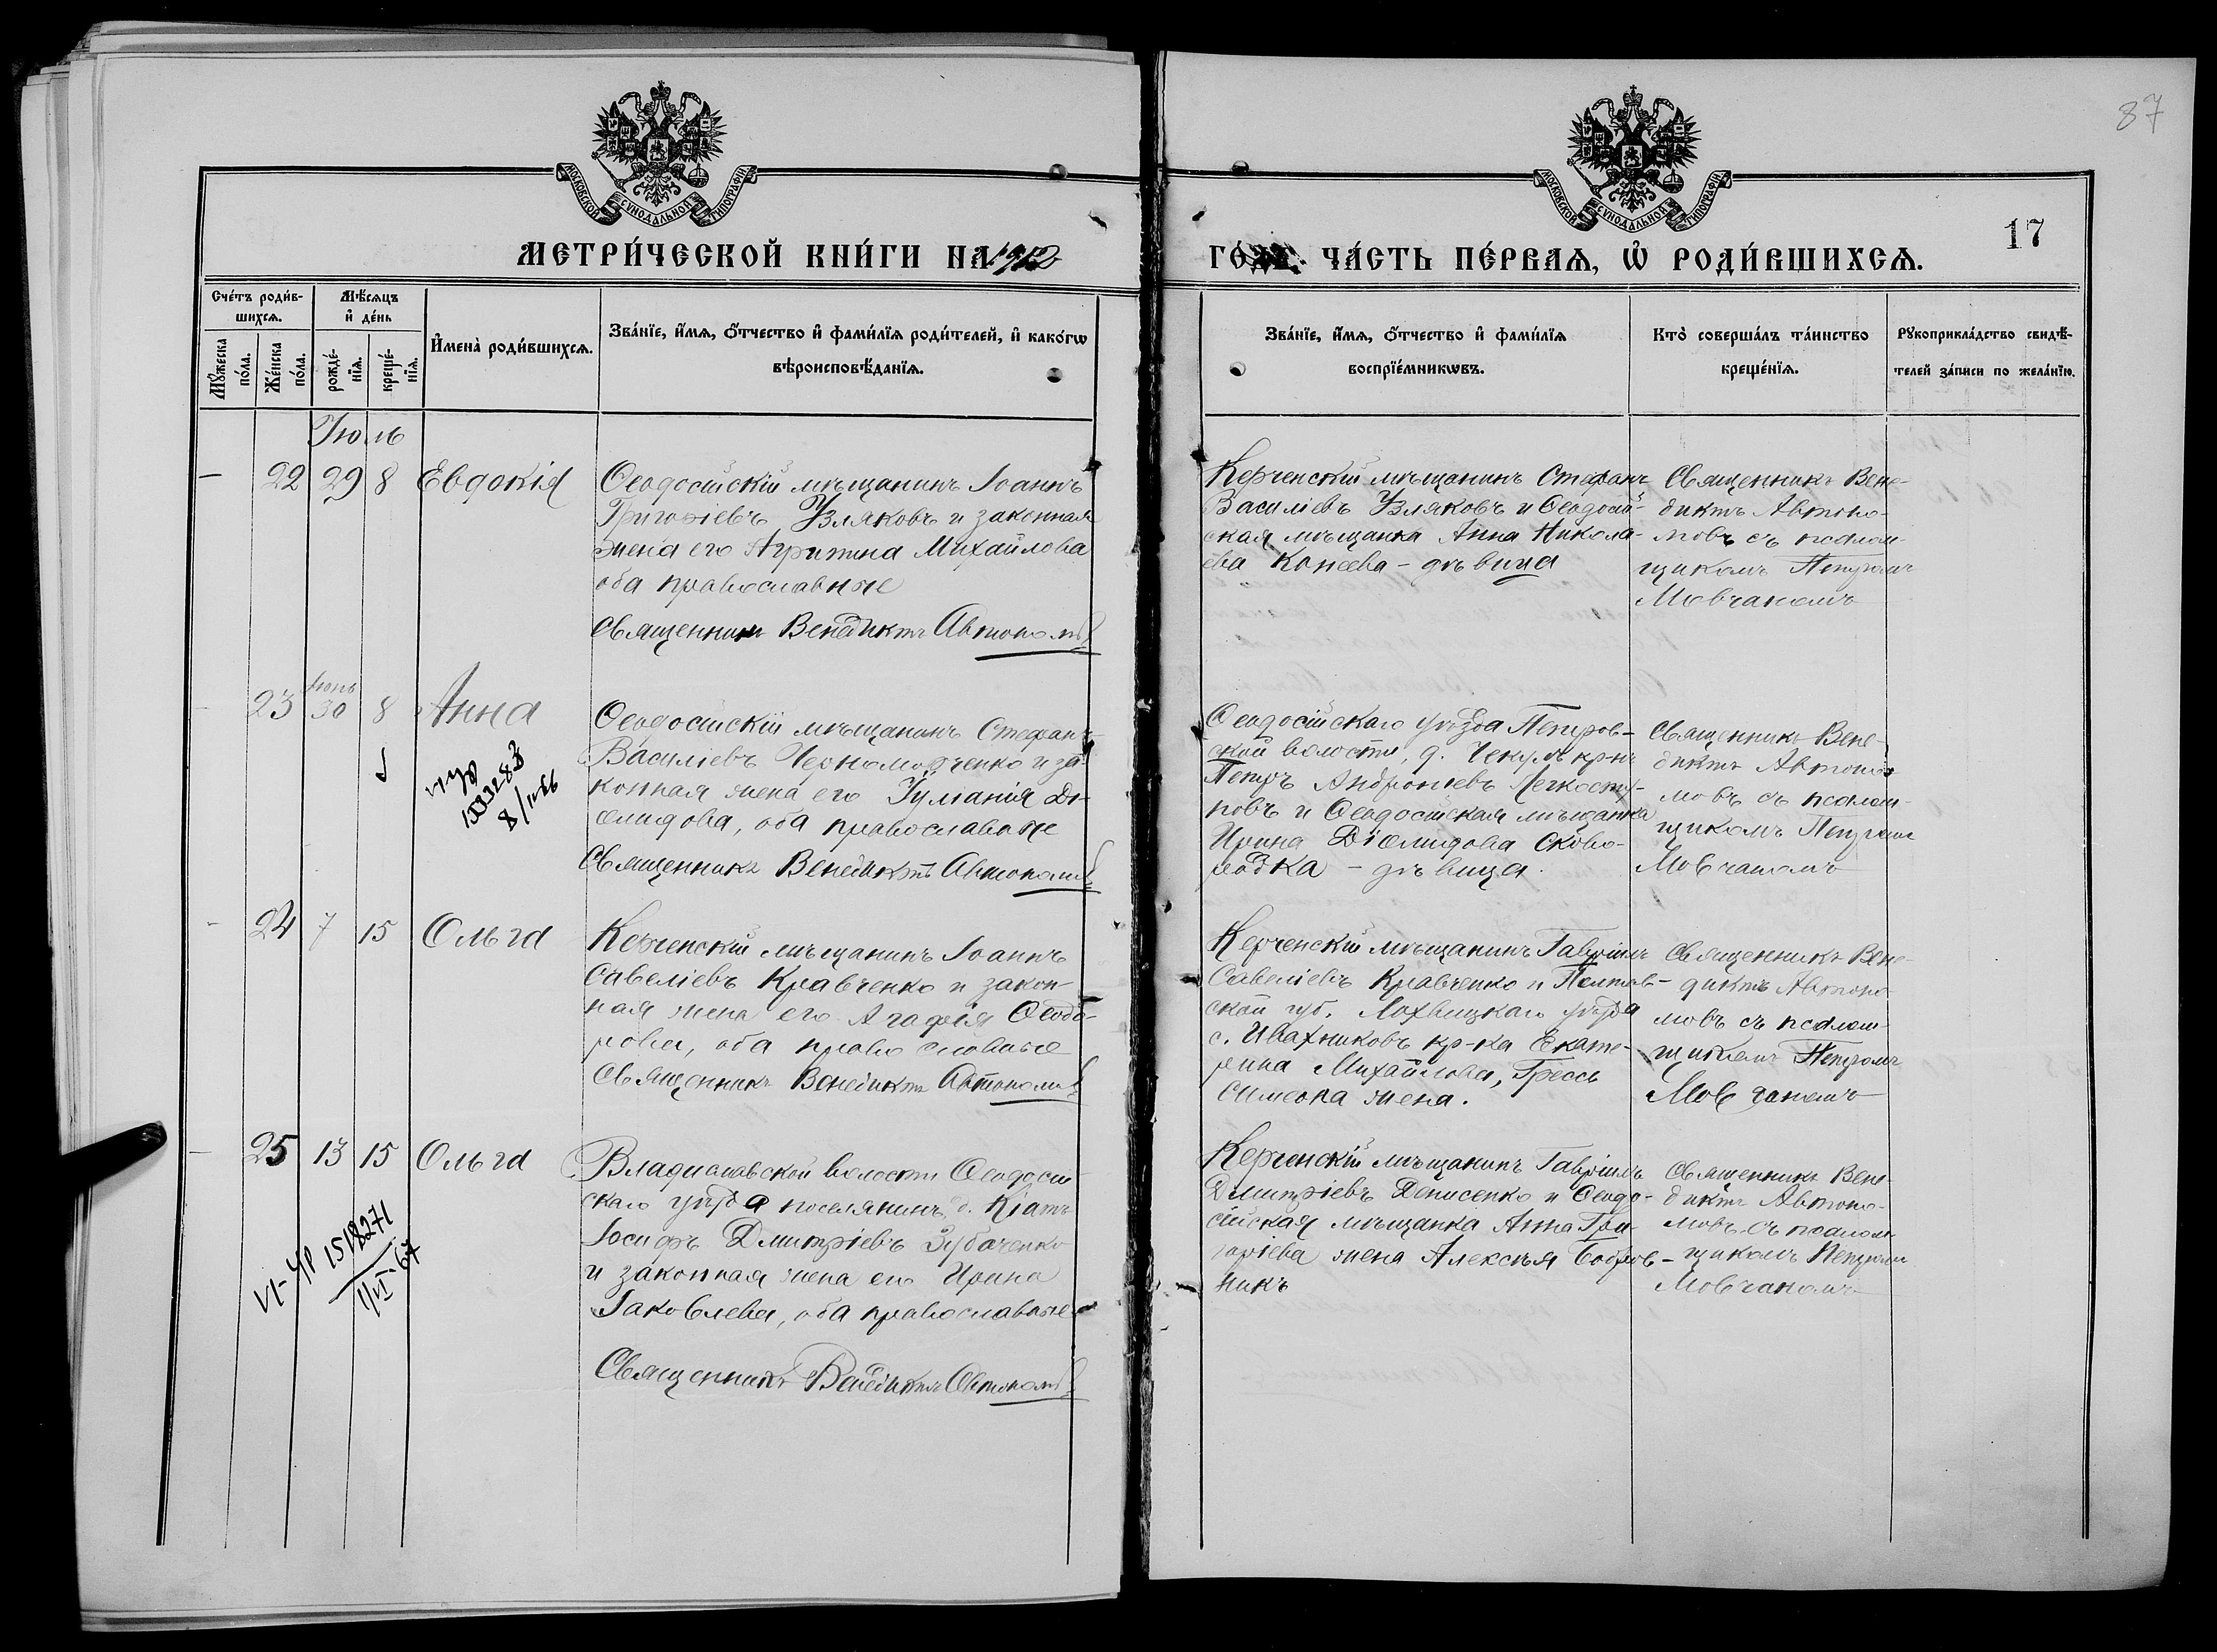 87
МОСКОВСКОЙ СѴНОДАЛЬНОЙ ТИПОГРАФІИ
МОСКОВСКОЙ СѴНОДАЛЬНОЙ ТИПОГРАФІИ
17
МЕТРИ́ЧЕСКОЙ КНИ́ГИ НА 1912
ЧА́СТЬ ПЕ́РВАѦ, Ѽ РОДИ́ВШИХСѦ.
Сче́тъ роди́в-
шихсѧ.
Мѣ́сѧцъ
и҆ де́нь
Мꙋ́жеска
по́ла.
Же́нска
по́ла.
рожде́-
нїѧ.
креще́-
нїѧ.
И҆мена̀ роди́вшихсѧ.
Зва́нїе, и҆́мѧ, ѻ҆́тчество и҆ фами́лїѧ роди́телей, и҆ како́гѡ
вѣроисповѣ́данїѧ.
Зва́нїе, и҆́мѧ, ѻ҆́тчество и҆ фами́лїѧ
воспрїе́мникѡвъ.
Кто̀ соверша́лъ та́инство
креще́нїѧ.
Рꙋкоприкла́дство свидѣ́-
телей за́писи по жела́нїю.
Іюль
— 22 29 8 Евдокія
Ѳеодосійскій мѣщанинъ Іоаннъ
Григоріевъ Узляковъ и законная
жена его Агрипина Михайлова
оба православные
Священникъ Венедиктъ Автономовъ
Керченскій мѣщанинъ Стефанъ
Василіевъ Узляковъ и Ѳеодосій-
ская мѣщанка Анна Никола-
ева Конеева - дѣвица
Священникъ Вене-
диктъ Автоно-
мовъ съ псалом-
щикомъ Петромъ
Мовчаномъ
23 Іюнь 30 8 Анна
1966
Ѳеодосійскій мѣщанинъ Стефанъ
Василіевъ Черноморченко и за-
конная жена его Іуліанія Ді-
омидова, оба православные
Священникъ Венедиктъ Автономовъ
Ѳеодосійскаго уѣзда Петров-
ской волости, д.
Петръ Андроніевъ Легкосту-
повъ и Ѳеодосійская мѣщанка
Ирина Діомидова Сково-
родка - дѣвица.
Священникъ Вене-
диктъ Автоно-
мовъ съ псалом-
щикомъ Петромъ
Мовчаномъ
- 24 7 15 Ольга
Керченскій мѣщанинъ Іоаннъ
Савеліевъ Кравченко и закон-
ная жена его Агафія Ѳеодо-
рова, оба православные
Священникъ Венедиктъ Автономовъ
Керченскій мѣщанинъ Гавріилъ
Савеліевъ Кравченко и Полтав-
ской губ. Лохвицкаго уѣзда
с. Ивахниковъ кр-ка Екате-
рина Михайлова, Гресь
Симеона жена.
Священникъ Вене-
диктъ Автоно-
мовъ съ псалом-
щикомъ Петромъ
Мовчаномъ
— 25 13 15 Ольга
VI-ЧР 1518271
1/VI-67
Владиславской волости Ѳеодосій-
скаго уѣзда поселянинъ д. Кіатъ
Іосифъ Дмитріевъ Зубаченко
и законная жена его Ирина
Іаковлева, оба православные
Священникъ Венедиктъ Автономовъ
Керченскій мѣщанинъ Гавріилъ
Дмитріевъ Денисенко и Ѳеодо-
сійская мѣщанка Анна Гри-
горіева жена Алексѣя Бобров-
никъ
Священникъ Вене-
диктъ Автоно-
мовъ съ псалом-
щикомъ Петромъ
Мовчаномъ